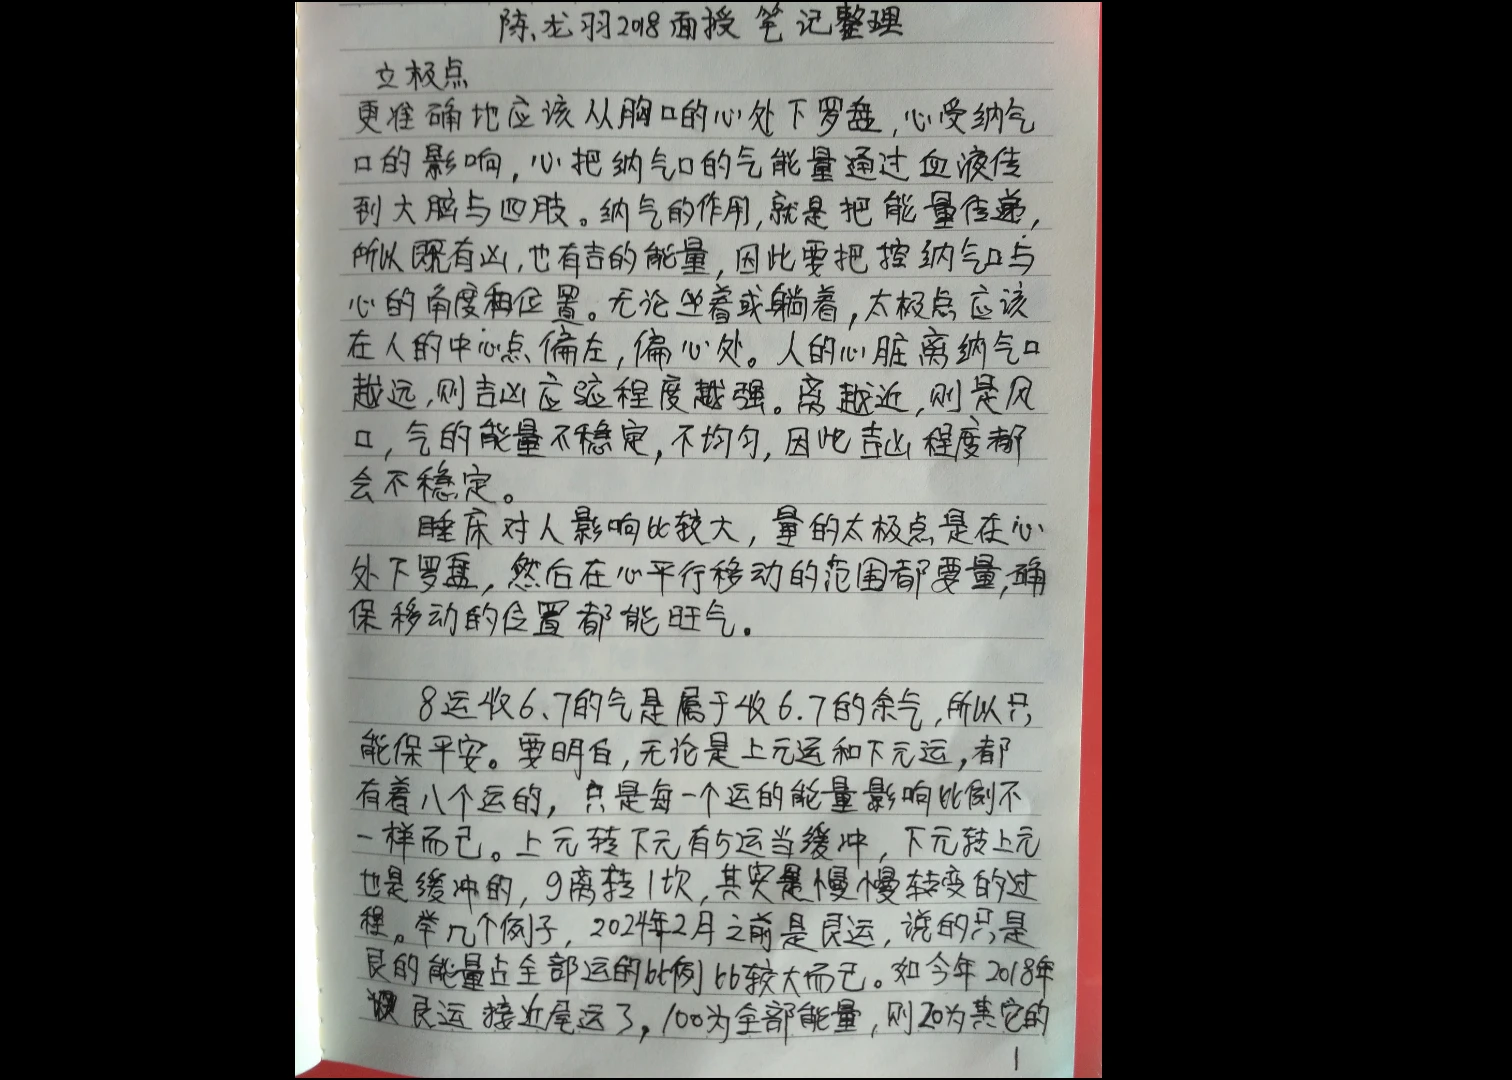 陈龙羽2018面授笔记整理
立极点
更准确地应该从胸口的心处下罗盘,心受纳气
口的影响,心把纳气口的气能量通过血液传
到大脑与四肢。纳气的作用,就是把能量传递,
所以既有凶,也有吉的能量,因此要把控纳气口与
心的角度和位置。无论坐着或躺着,太极点应该
在人的中心点偏左,偏心处。人的心脏离纳气口
越远,则吉凶应验程度越强。离越近,则是风
口,气的能量不稳定,不均匀,因此吉凶程度都
会不稳定。
睡床对人影响比较大,量的太极点是在心
处下罗盘,然后在心平行移动的范围都要量,确
保移动的位置都能旺气。
8运收6、7的气是属于收6.7的余气,所以只
能保平安。要明白,无论是上元运和下元运,都
有着八个运的,只是每一个运的能量影响比例不
一样而已。上元转下元有5运当缓冲,下元转上元
也是缓冲的,9离转1坎,其实是慢慢转变的过
程。举几个例子,2024年2月之前是艮运,说的只是
艮的能量占全部运的比例比较大而已。如今年2018年
艮运接近尾运了,100为全部能量,则20为其它的
1